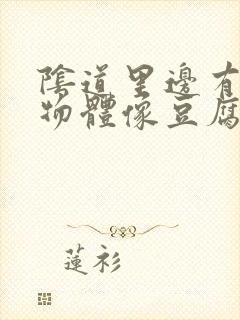 陰道里邊有
物體像豆腐
蓮衫